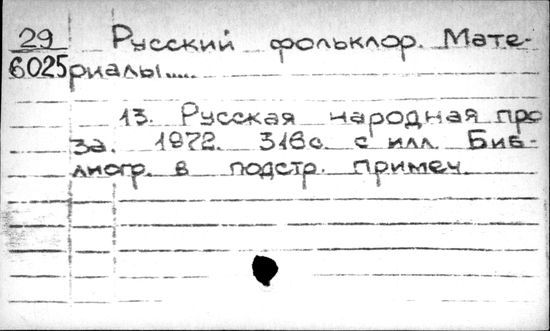 29 Русский фольклор. Мате-
6025 риалы.....
13. Русская народная про
за. 1972. 316с. с илл. Биб-
лиогр. в подстр. примеч.